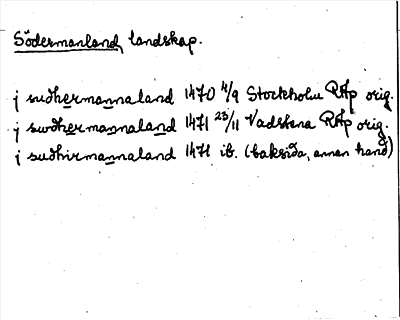 Södermanland, landskap.
j sudhermannaland 1470 4/9 Stockholm RAp orig.
j swdhermannaland 1471 23/11 Vadstena RAp orig.
j sudhirmannaland 1471 ib. (baksida, annan hand)